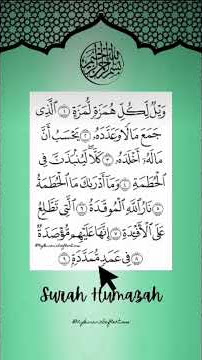 بسم الله الرحمن الرحيم
وَيْلٌ لِّكُلِّ هُمَزَةٍ لُّمَزَةٍ ١ ٱلَّذِى
جَمَعَ مَالًا وَعَدَّدَهُۥ ٢ يَحْسَبُ أَنَّ
مَالَهُۥٓ أَخْلَدَهُۥ ٣ كَلَّا ۖ لَيُنۢبَذَنَّ فِى
ٱلْحُطَمَةِ ٤ وَمَآ أَدْرَىٰكَ مَا ٱلْحُطَمَةُ
٥ نَارُ ٱللَّهِ ٱلْمُوقَدَةُ ٦ ٱلَّتِى تَطَّلِعُ
عَلَى ٱلْأَفْـِٔدَةِ ٧ إِنَّهَا عَلَيْهِم مُّؤْصَدَةٌ
٨ فِى عَمَدٍ مُّمَدَّدَةٍۭ ٩
Surah Humazah